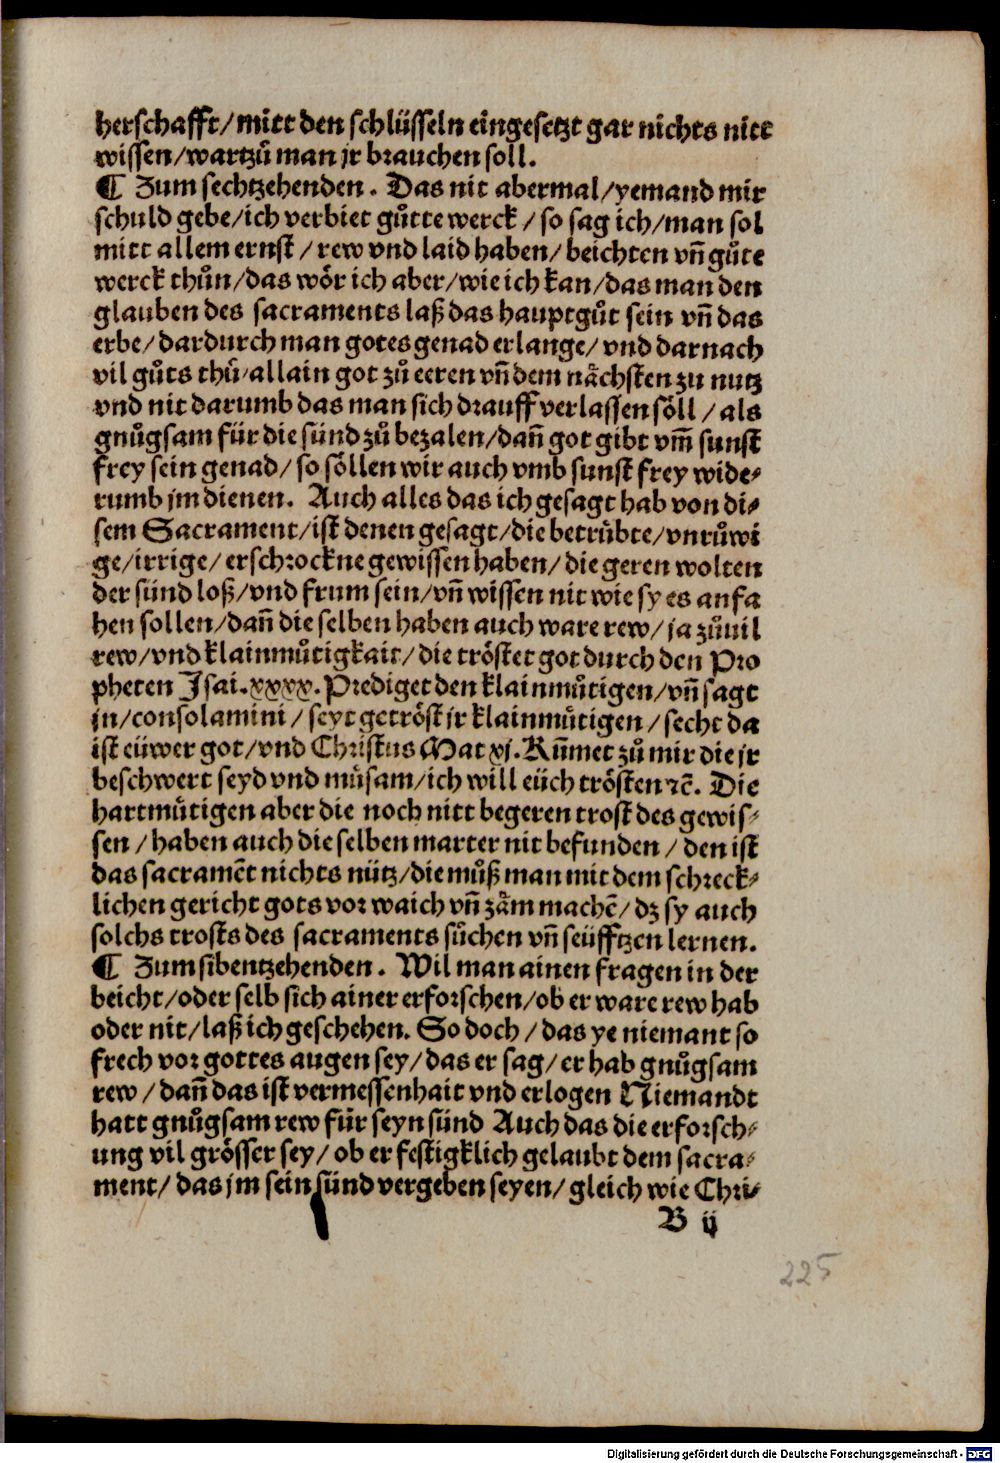 herschafft/mitt den schlüsseln eingesetzt gar nichts nitt
wissen/wartzů man jr brauchen soll.
¶ Zum sechtzehenden. Das nit abermal/yemand mir
schuld gebe/ich verbiet gůtte werck/so sag ich/man sol
mitt allem ernst/rew vnd laid haben/beichten vñ gůte
werck thůn/das wör ich aber/wie ich kan/das man den
glauben des sacraments laß das hauptgůt sein vñ das
erbe/dardurch man gotes genad erlange/vnd darnach
vil gůts thů/allain got zů eeren vñ dem nächsten zu nutz
vnd nit darumb das man sich drauff verlassen söll/als
gnůgsam für die sünd zů bezalen/dañ got gibt vm̃ sunst
frey sein genad/so söllen wir auch vmb sunst frey wide⸗
rumb jm dienen. Auch alles das ich gesagt hab von di⸗
sem Sacrament/ist denen gesagt/die betrůbte/vnrůwi
ge/irrige/erschrockne gewissen haben/die geren wolten
der sünd loß/vnd frum sein/vñ wissen nit wie sy es anfa
hen sollen/dañ die selben haben auch ware rew/ja zůuil
rew/vnd klainmůtigkait/die tröstet got durch den Pro
pheten Isai.xxxx. Prediget den klainmůtigen/vñ sagt
jn/consolamini/seyt getröst jr klainmůtigen/secht da
ist eüwer got/vnd Christus Mat xj. Kum̃et zů mir die jr
beschwert seyd vnd můsam/ich will eüch trösten ⁊c̃. Die
hartmůtigen aber die noch nitt begeren trost des gewis⸗
sen/haben auch die selben marter nit befunden/den ist
das sacramẽt nichts nütz/die můß man mit dem schreck⸗
lichen gericht gots vor waich vñ zäm machẽ/dz sy auch
solchs trosts des sacraments sůchen vñ seüfftzen lernen.
¶ Zum sibentzehenden. Wil man ainen fragen in der
beicht/oder selb sich ainer erforschen/ob er ware rew hab
oder nit/laß ich geschehen. So doch/das ye niemant so
frech vor gottes augen sey/das er sag/er hab gnůgsam
rew/dañ das ist vermessenhait vnd erlogen Niemandt
hatt gnůgsam rew für seyn sünd Auch das die erforsch⸗
ung vil grösser sey/ob er festigklich gelaubt dem sacra⸗
ment/das jm sein sünd vergeben seyen/gleich wie Chri⸗
B ij
225
Digitalisierung gefördert durch die Deutsche Forschungsgemeinschaft - DFG